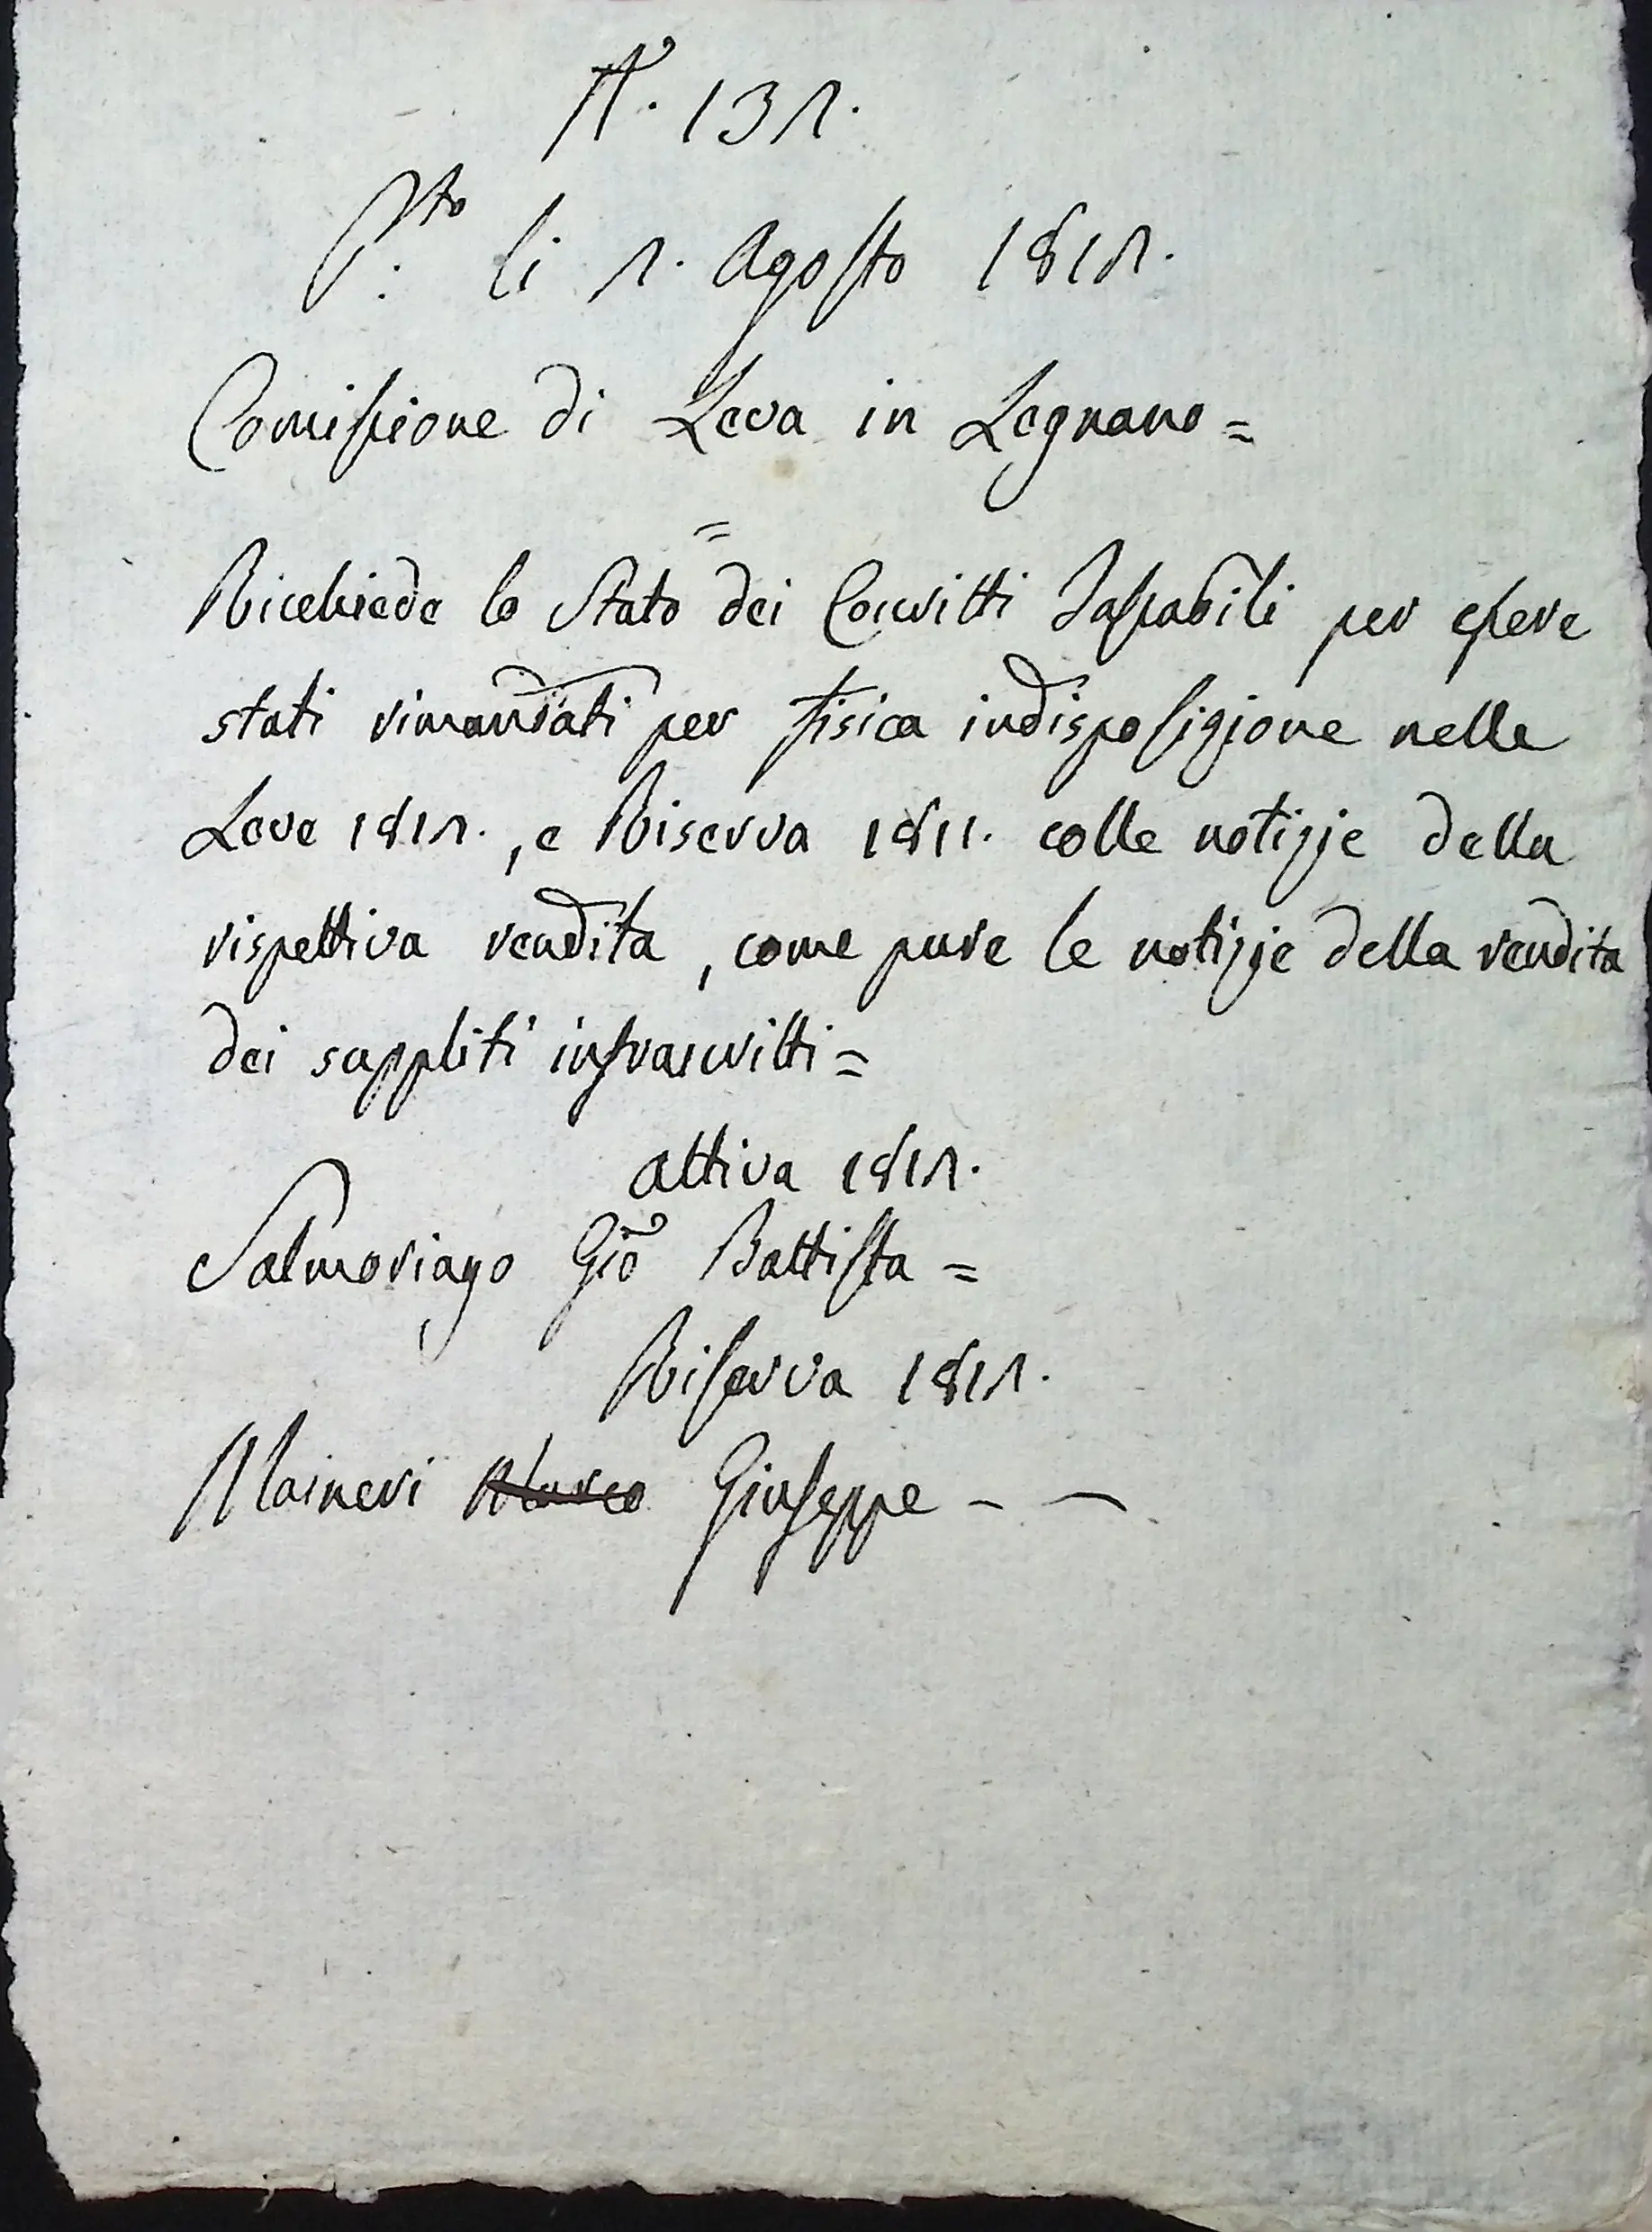 N. 131.
P.to li 1. Agosto 1811.
Comissione di Leva in Legnano =
=
Ricchiede lo Stato dei Coscritti Tassabili per essere
stati rimandati per fisica indisposizione nelle
Leve 1811., e Riserva 1811. colle notizie della
rispettiva rendita, come pure le notizie della rendita
dei suppliti infrascritti =
attiva 1811.
Salmoriago Gio Battista =
Riserva 1811.
Maineri Marco Giuseppe - -